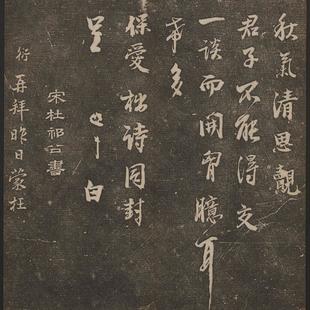 秋氣清思覯
君子不能得支
一談而開胷臆耳
希多
保愛拙詩同封
呈 白
宋杜祁公書
衍再拜昨日蒙枉